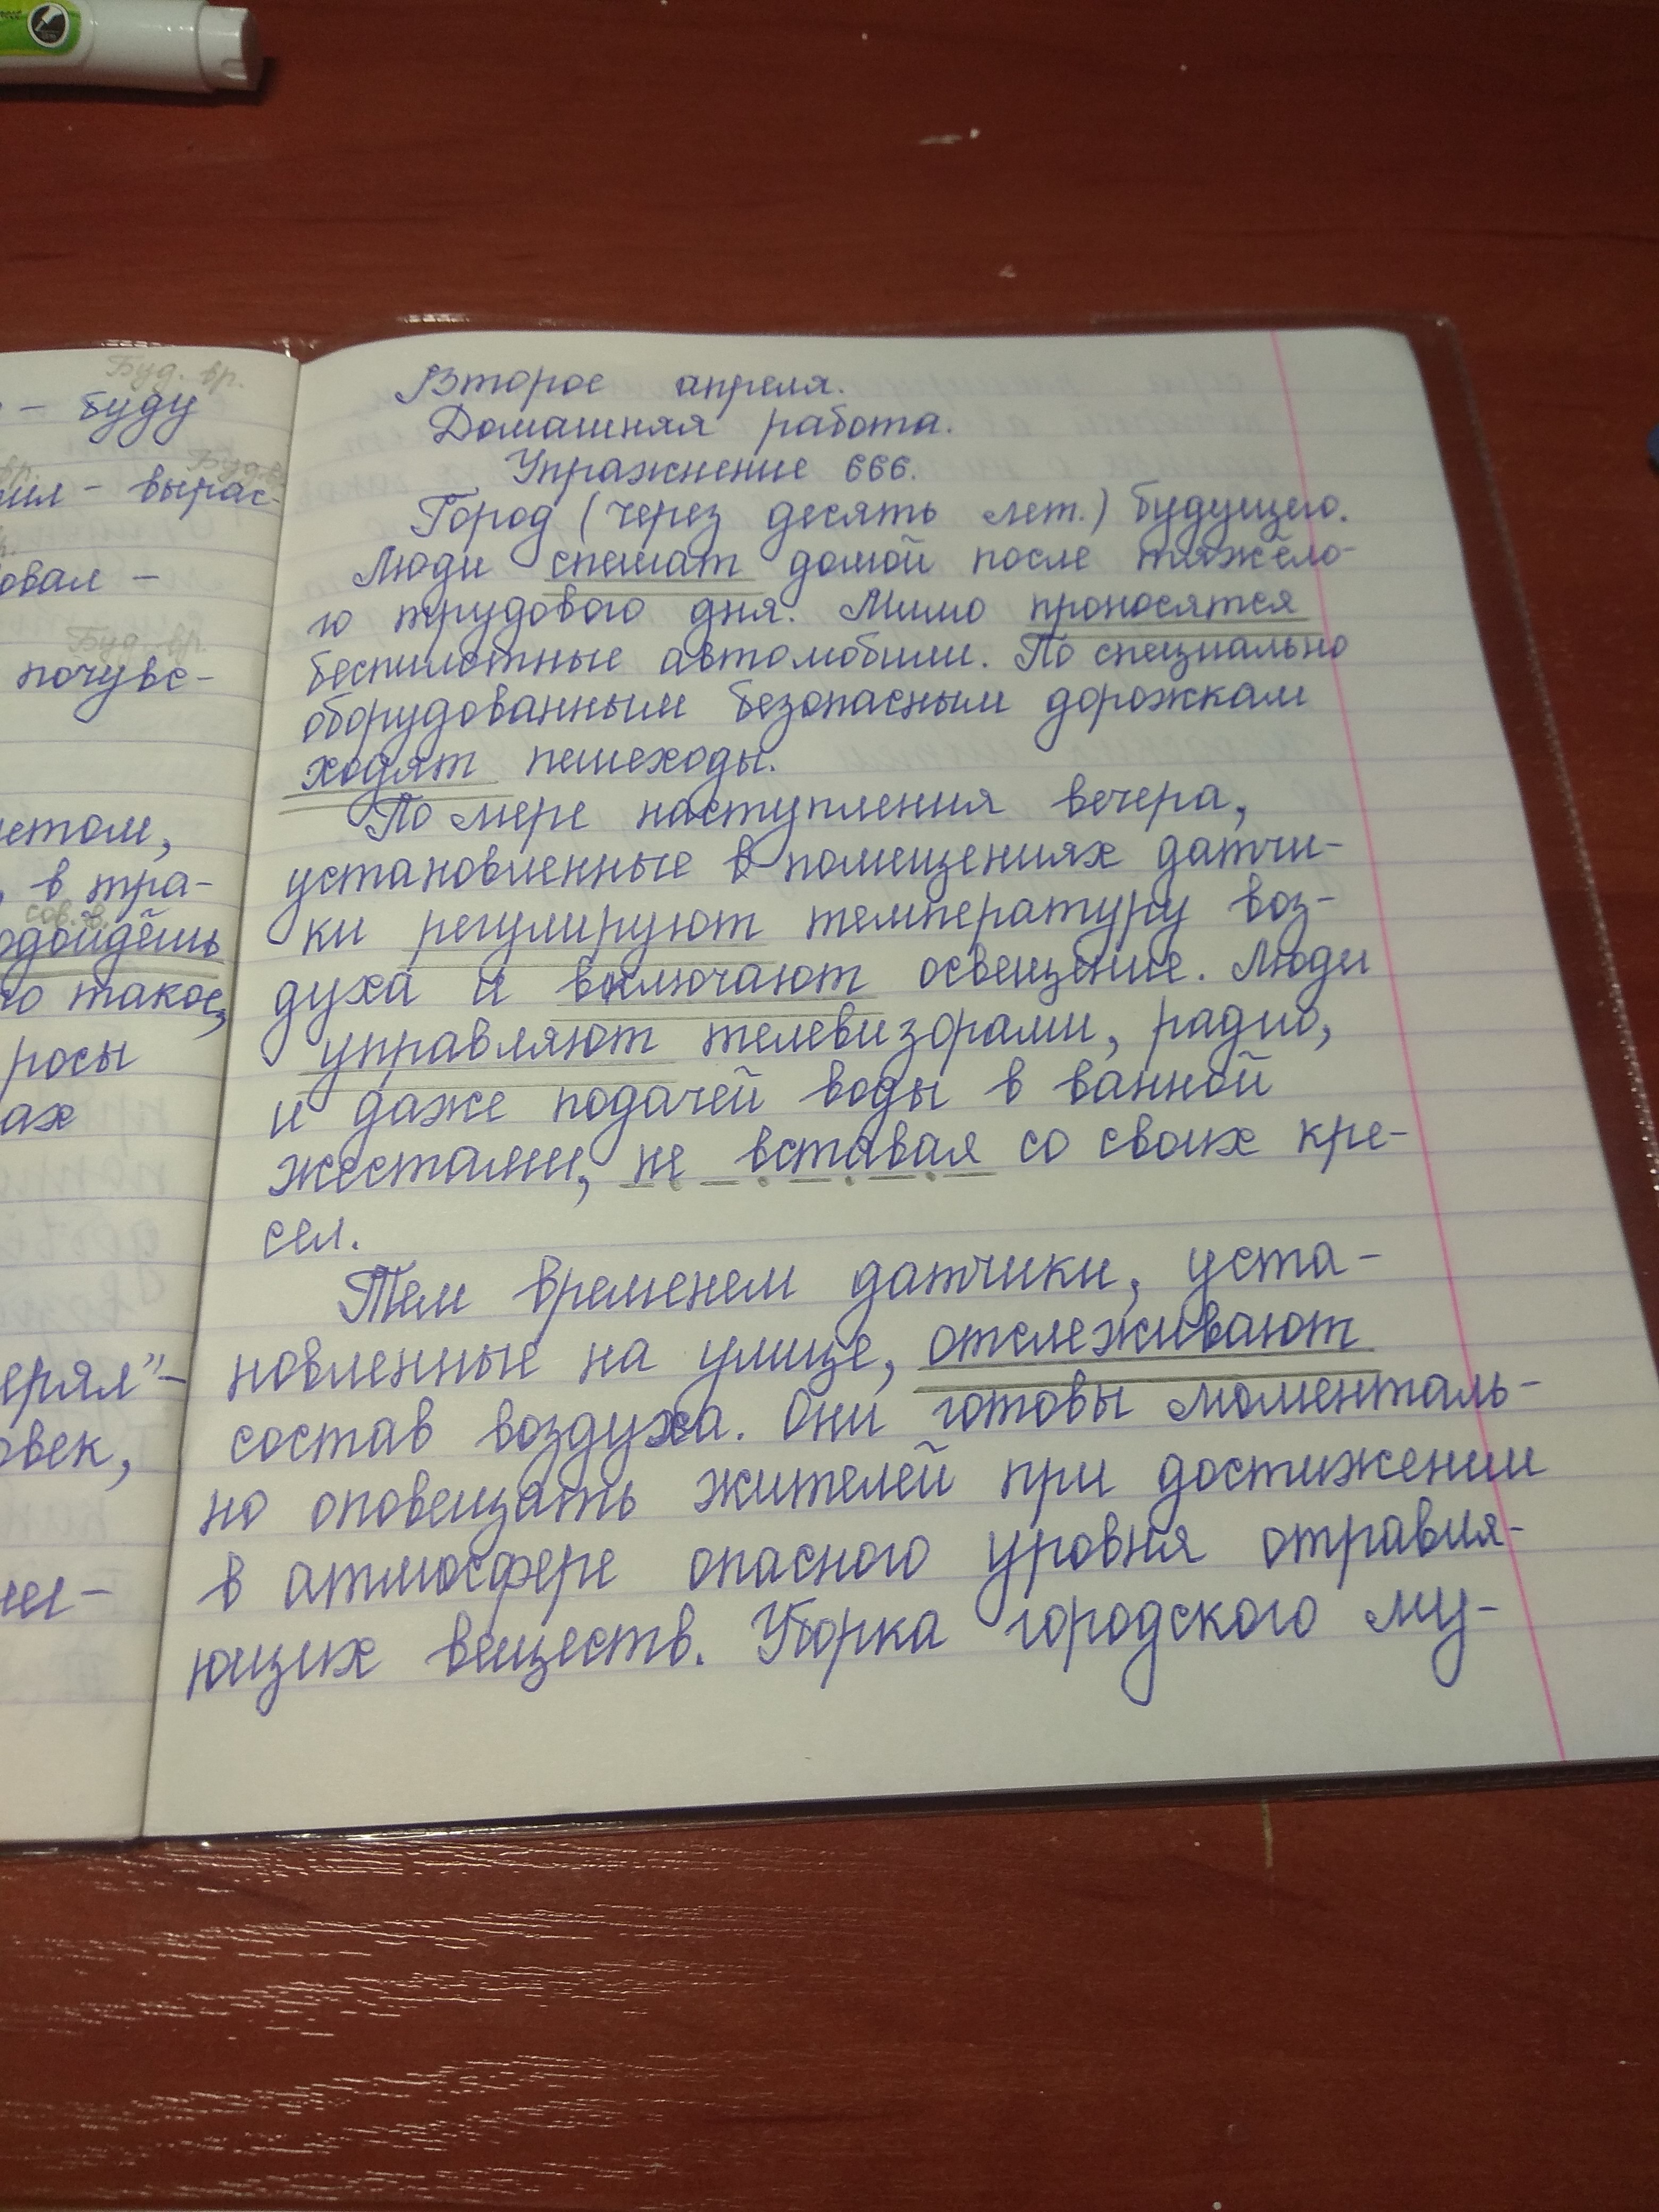 Буд. вр.
– буду
Буд.в.
– вырас-
овал –
Буд. вр.
почувс-
в тра-
сов. в.
одойдёшь
то такое,
росы
ах
ерял"–
овек,
Второе апреля.
Домашняя работа.
Упражнение 666.
Город (через десять лет.) будущего.
Люди спешат домой после тяжёло-
го трудового дня. Мимо проносятся
беспилотные автомобили. По специально
оборудованным безопасным дорожкам
ходят пешеходы.
По мере наступления вечера,
установленные в помещениях датчи-
ки регулируют температуру воз-
духа и включают освещение. Люди
управляют телевизорами, радио,
и даже подачей воды в ванной
жестами, не вставая со своих кре-
сел.
Тем временем датчики, уста-
новленные на улице, отслеживают
состав воздуха. Они готовы моменталь-
но оповещать жителей при достижении
в атмосфере опасного уровня отравля-
ющих веществ. Уборка городского му-